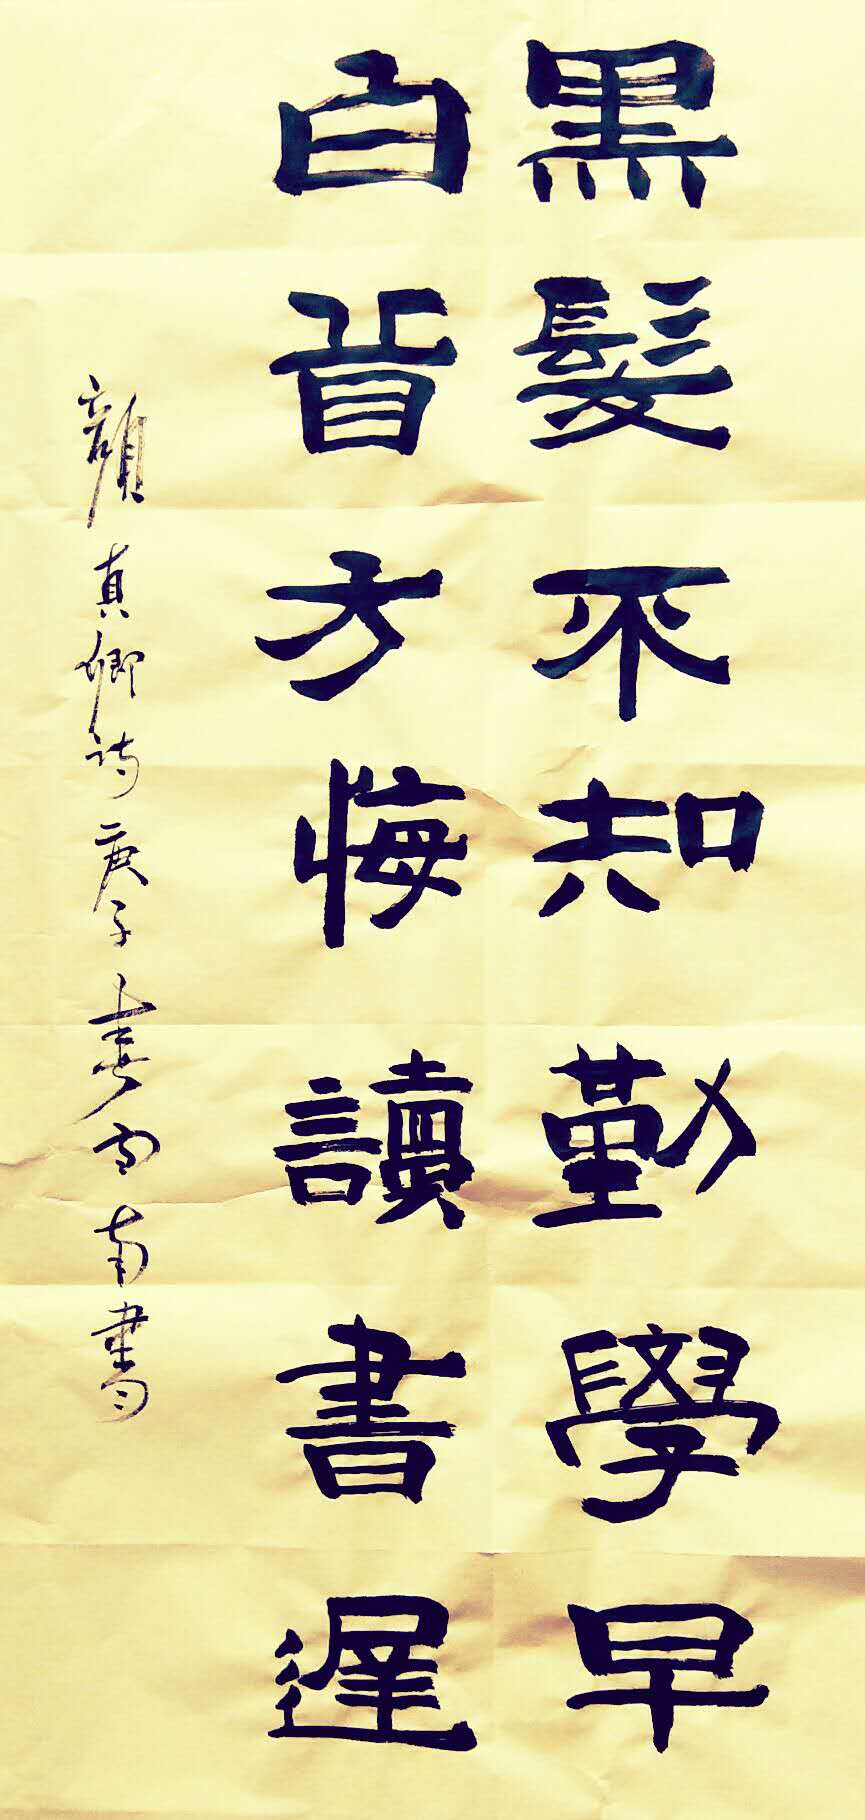 黑髮不知勤學早
白首方悔讀書遲
顏真卿詩庚子春南書